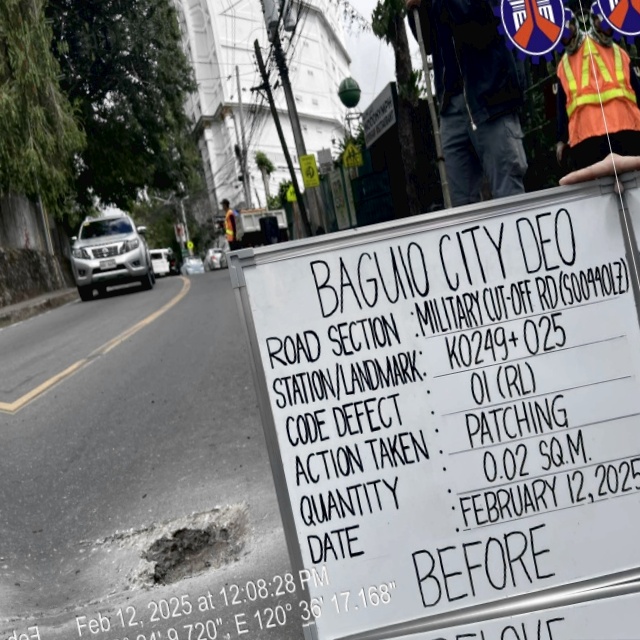 BAGUIO CITY DEO
ROAD SECTION : MILITARY CUT-OFF RD (S00440LZ)
STATION/LANDMARK : K0249+025
CODE DEFECT : 01 (RL)
ACTION TAKEN : PATCHING
QUANTITY : 0.02 SQ.M.
DATE : FEBRUARY 12, 2025
BEFORE
Feb 12, 2025 at 12:08:28 PM
9.720", E 120° 36' 17.168"